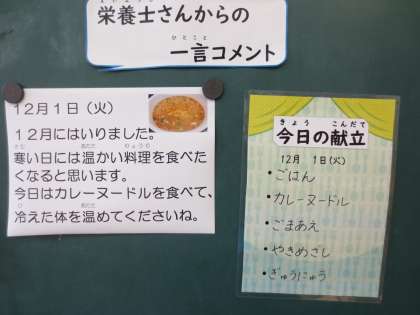 栄養士さんからの
一言コメント
ひとこと
12月1日（火）
12月にはいりました。
寒い日には温かい料理を食べた
くなると思います。
今日はカレーヌードルを食べて、
冷えた体を温めてくださいね。
きょう こんだて
今日の献立
12月 1日(火)
・ごはん
・カレーヌードル
・ごまあえ
・やきめざし
・ぎゅうにゅう